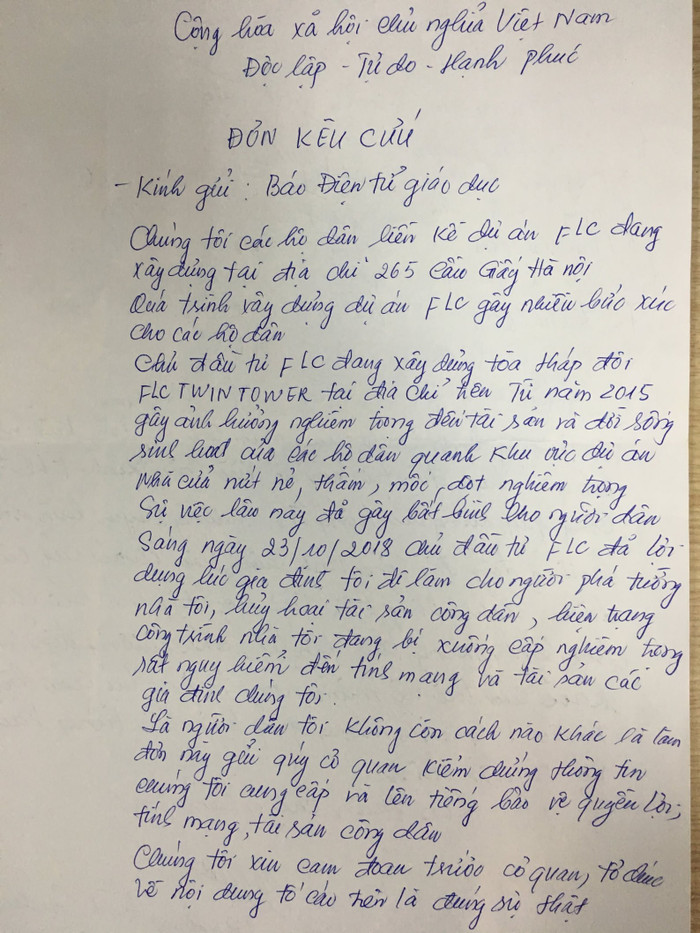 Cộng hóa xả hội chủ nghỉa Việt Nam
Độc lập - Tự do - Hạnh phúc
ĐƠN KÊU CỨU
- Kính gửi : Báo Điện tử giáo dục
Chúng tôi các hộ dân liền kề dự án FLC đang
xây dựng tại địa chỉ 265 Cầu Giấy Hà nội
Quá trình xây dựng dự án FLC gây nhiều bức xúc
cho các hộ dân
Chủ đầu tư FLC đang xây dựng tòa tháp đôi
FLC TWIN TOWER tại địa chỉ trên Từ năm 2015
gây ảnh hưởng nghiêm trọng đến tài sản và đời sống
sinh hoạt của các hộ dân quanh khu vực dự án
Nhà cửa nứt nẻ, thấm, mốc, dột nghiêm trọng
Sự việc lâu nay đã gây bất bình cho người dân
Sáng ngày 23/10/2018 chủ đầu tư FLC đã lợi
dụng lúc gia đình tôi đi làm cho người phá tường
nhà tôi, hủy hoại tài sản công dân, hiện trạng
công trình nhà tôi đang bị xuống cấp nghiêm trọng
rất nguy hiểm đến tính mạng và tài sản các
gia đình chúng tôi.
Là người dân tôi không còn cách nào khác là làm
đơn này gửi quý cơ quan kiểm chứng thông tin
chúng tôi cung cấp và lên tiếng bảo vệ quyền lợi,
tính mạng, tài sản công dân
Chúng tôi xin cam đoan trước cơ quan, tổ chức
về nội dung tố cáo trên là đúng sự thật